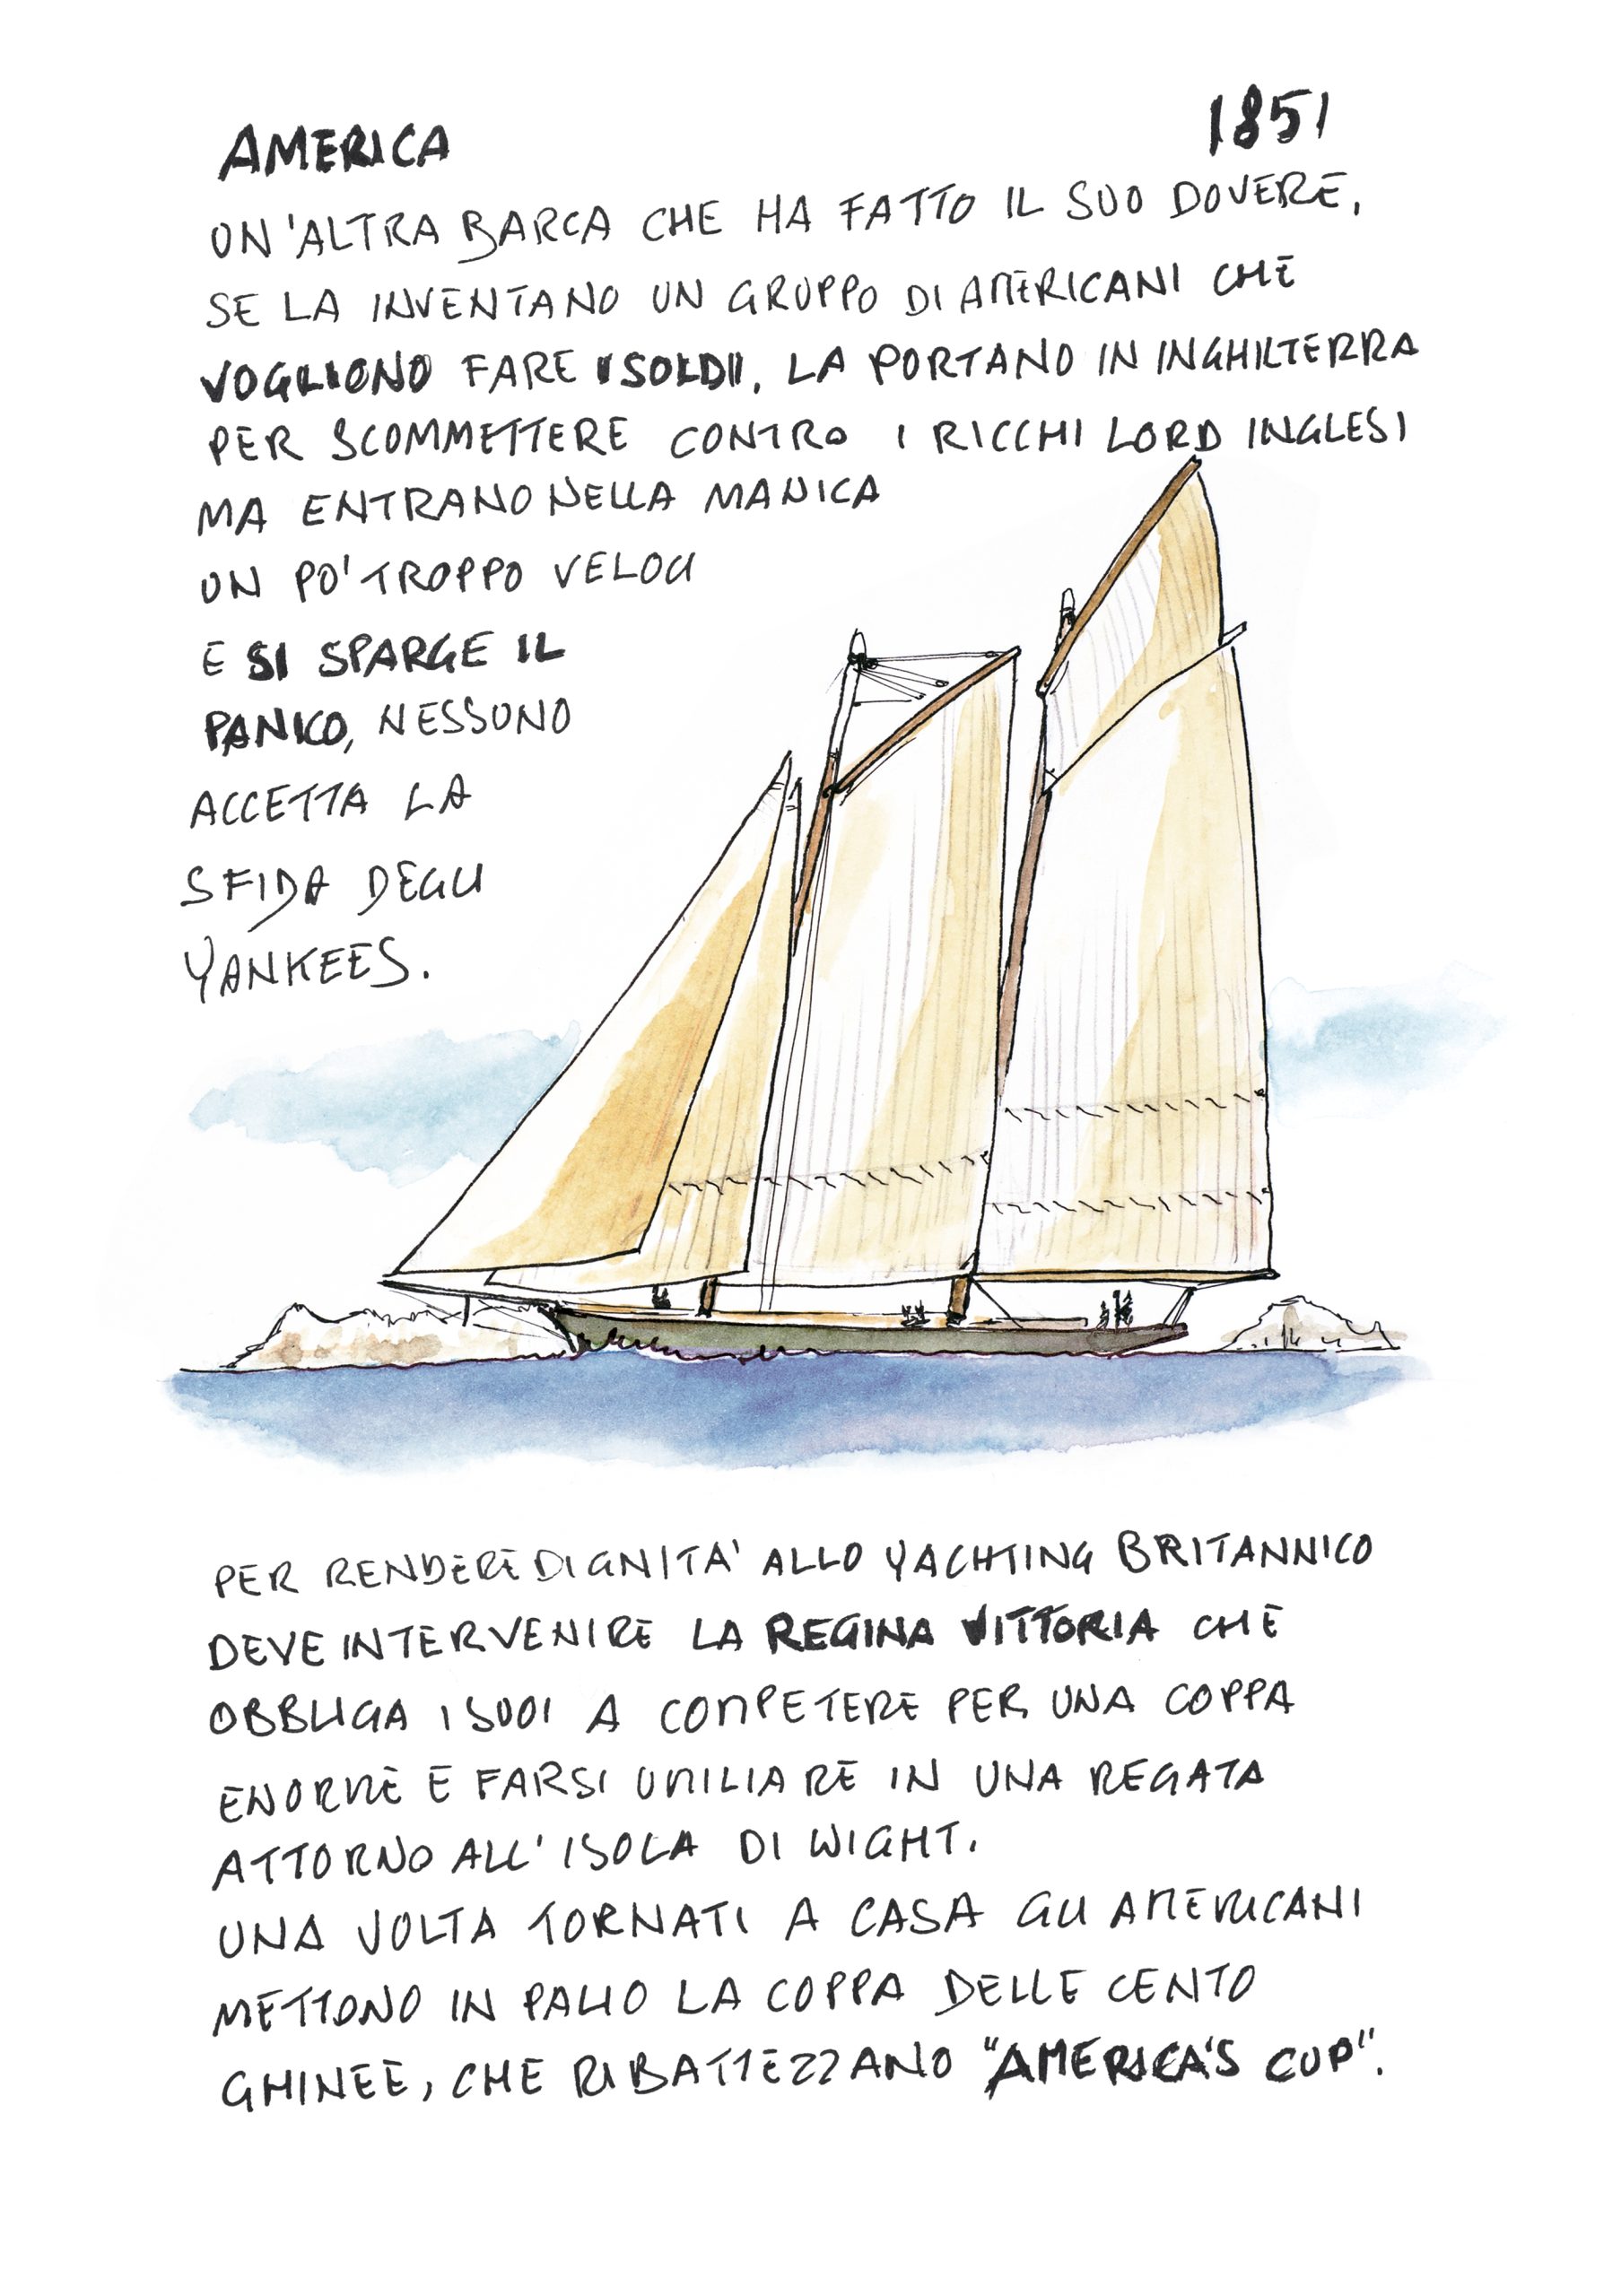 AMERICA 1851
UN'ALTRA BARCA CHE HA FATTO IL SUO DOVERE,
SE LA INVENTANO UN GRUPPO DI AMERICANI CHE
VOGLIONO FARE I SOLDI, LA PORTANO IN INGHILTERRA
PER SCOMMETTERE CONTRO I RICCHI LORD INGLESI
MA ENTRANO NELLA MANICA
UN PO' TROPPO VELOCI
E SI SPARGE IL
PANICO, NESSUNO
ACCETTA LA
SFIDA DEGLI
YANKEES.
PER RENDERE DIGNITA' ALLO YACHTING BRITANNICO
DEVE INTERVENIRE LA REGINA VITTORIA CHE
OBBLIGA I SUOI A COMPETERE PER UNA COPPA
ENORME E FARSI UMILIARE IN UNA REGATA
ATTORNO ALL'ISOLA DI WIGHT.
UNA VOLTA TORNATI A CASA GLI AMERICANI
METTONO IN PALIO LA COPPA DELLE CENTO
GHINEE, CHE RIBATTEZZANO "AMERICA'S CUP".